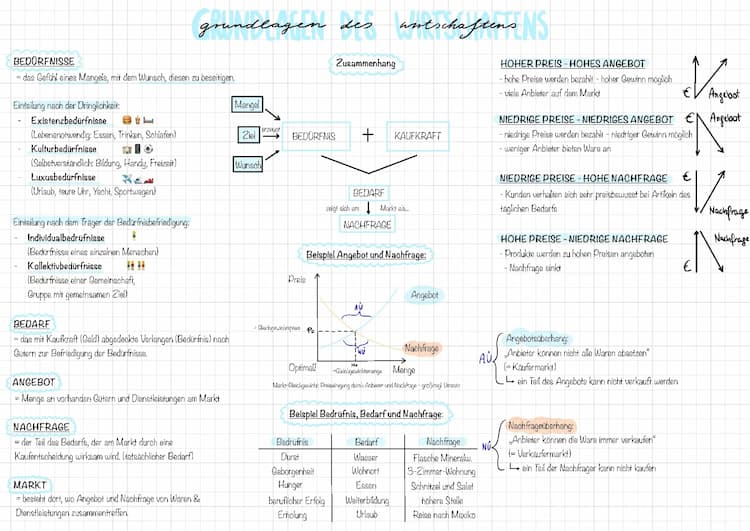 GRUNDLAGEN DES WIRTSCHAFTENS
grundlagen des wirtschaftens
BEDÜRFNISSE
= das Gefühl eines Mangels, mit dem Wunsch, diesen zu beseitigen.
Einteilung nach der Dringlichkeit:
- Existenzbedürfnisse
(Lebensnotwendig: Essen, Trinken, Schlafen)
- Kulturbedürfnisse
(Selbstverständlich: Bildung, Handy, Freizeit)
- Luxusbedürfnisse
(Urlaub, teure Uhr, Yacht, Sportwagen)
Einteilung nach dem Träger der Bedürfnisbefriedigung:
- Individualbedürfnisse
(Bedürfnisse eines einzelnen Menschen)
- Kollektivbedürfnisse
(Bedürfnisse einer Gemeinschaft,
Gruppe mit gemeinsamen Ziel)
BEDARF
= das mit Kaufkraft (Geld) abgedeckte Verlangen (Bedürfnis) nach
Gütern zur Befriedigung der Bedürfnisse.
ANGEBOT
= Menge an vorhanden Gütern und Dienstleistungen am Markt
NACHFRAGE
= der Teil des Bedarfs, der am Markt durch eine
Kaufentscheidung wirksam wird. (tatsächlicher Bedarf)
MARKT
= besteht dort, wo Angebot und Nachfrage von Waren &
Dienstleistungen zusammentreffen.
Zusammenhang
Mangel
Ziel
erzeugt
Wunsch
BEDÜRFNIS
+
KAUFKRAFT
BEDARF
zeigt sich am
Markt als...
NACHFRAGE
Beispiel Angebot und Nachfrage:
Preis
Angebot
AÜ
P₀
NÜ
Nachfrage
Optimal!
Menge
Beispiel Bedürfnis, Bedarf und Nachfrage:
Bedürfnis Bedarf Nachfrage
Durst Wasser Flasche Mineralw.
Geborgenheit Wohnort 3-Zimmer-Wohnung
Hunger Essen Schnitzel und Salat
beruflicher Erfolg Weiterbildung höhere Stelle
Erholung Urlaub Reise nach Mexiko
HOHER PREIS - HOHES ANGEBOT
- hohe Preise werden bezahlt - hoher Gewinn möglich
- viele Anbieter auf dem Markt
€ Angebot
NIEDRIGE PREISE - NIEDRIGES ANGEBOT
- niedrige Preise werden bezahlt - niedriger Gewinn möglich
- weniger Anbieter bieten Ware an
€ Angebot
NIEDRIGE PREISE - HOHE NACHFRAGE
- Kunden verhalten sich sehr preisbewusst bei Artikeln des
täglichen Bedarfs
€ Nachfrage
HOHE PREISE - NIEDRIGE NACHFRAGE
- Produkte werden zu hohen Preisen angeboten
- Nachfrage sinkt
€ Nachfrage
AÜ
Angebotsüberhang:
„Anbieter können nicht alle Waren absetzen"
(= Käufermarkt)
↳ ein Teil des Angebots kann nicht verkauft werden
NÜ
Nachfrageüberhang:
„Anbieter können die Ware immer verkaufen"
(= Verkäufermarkt)
↳ ein Teil der Nachfrager kann nicht kaufen